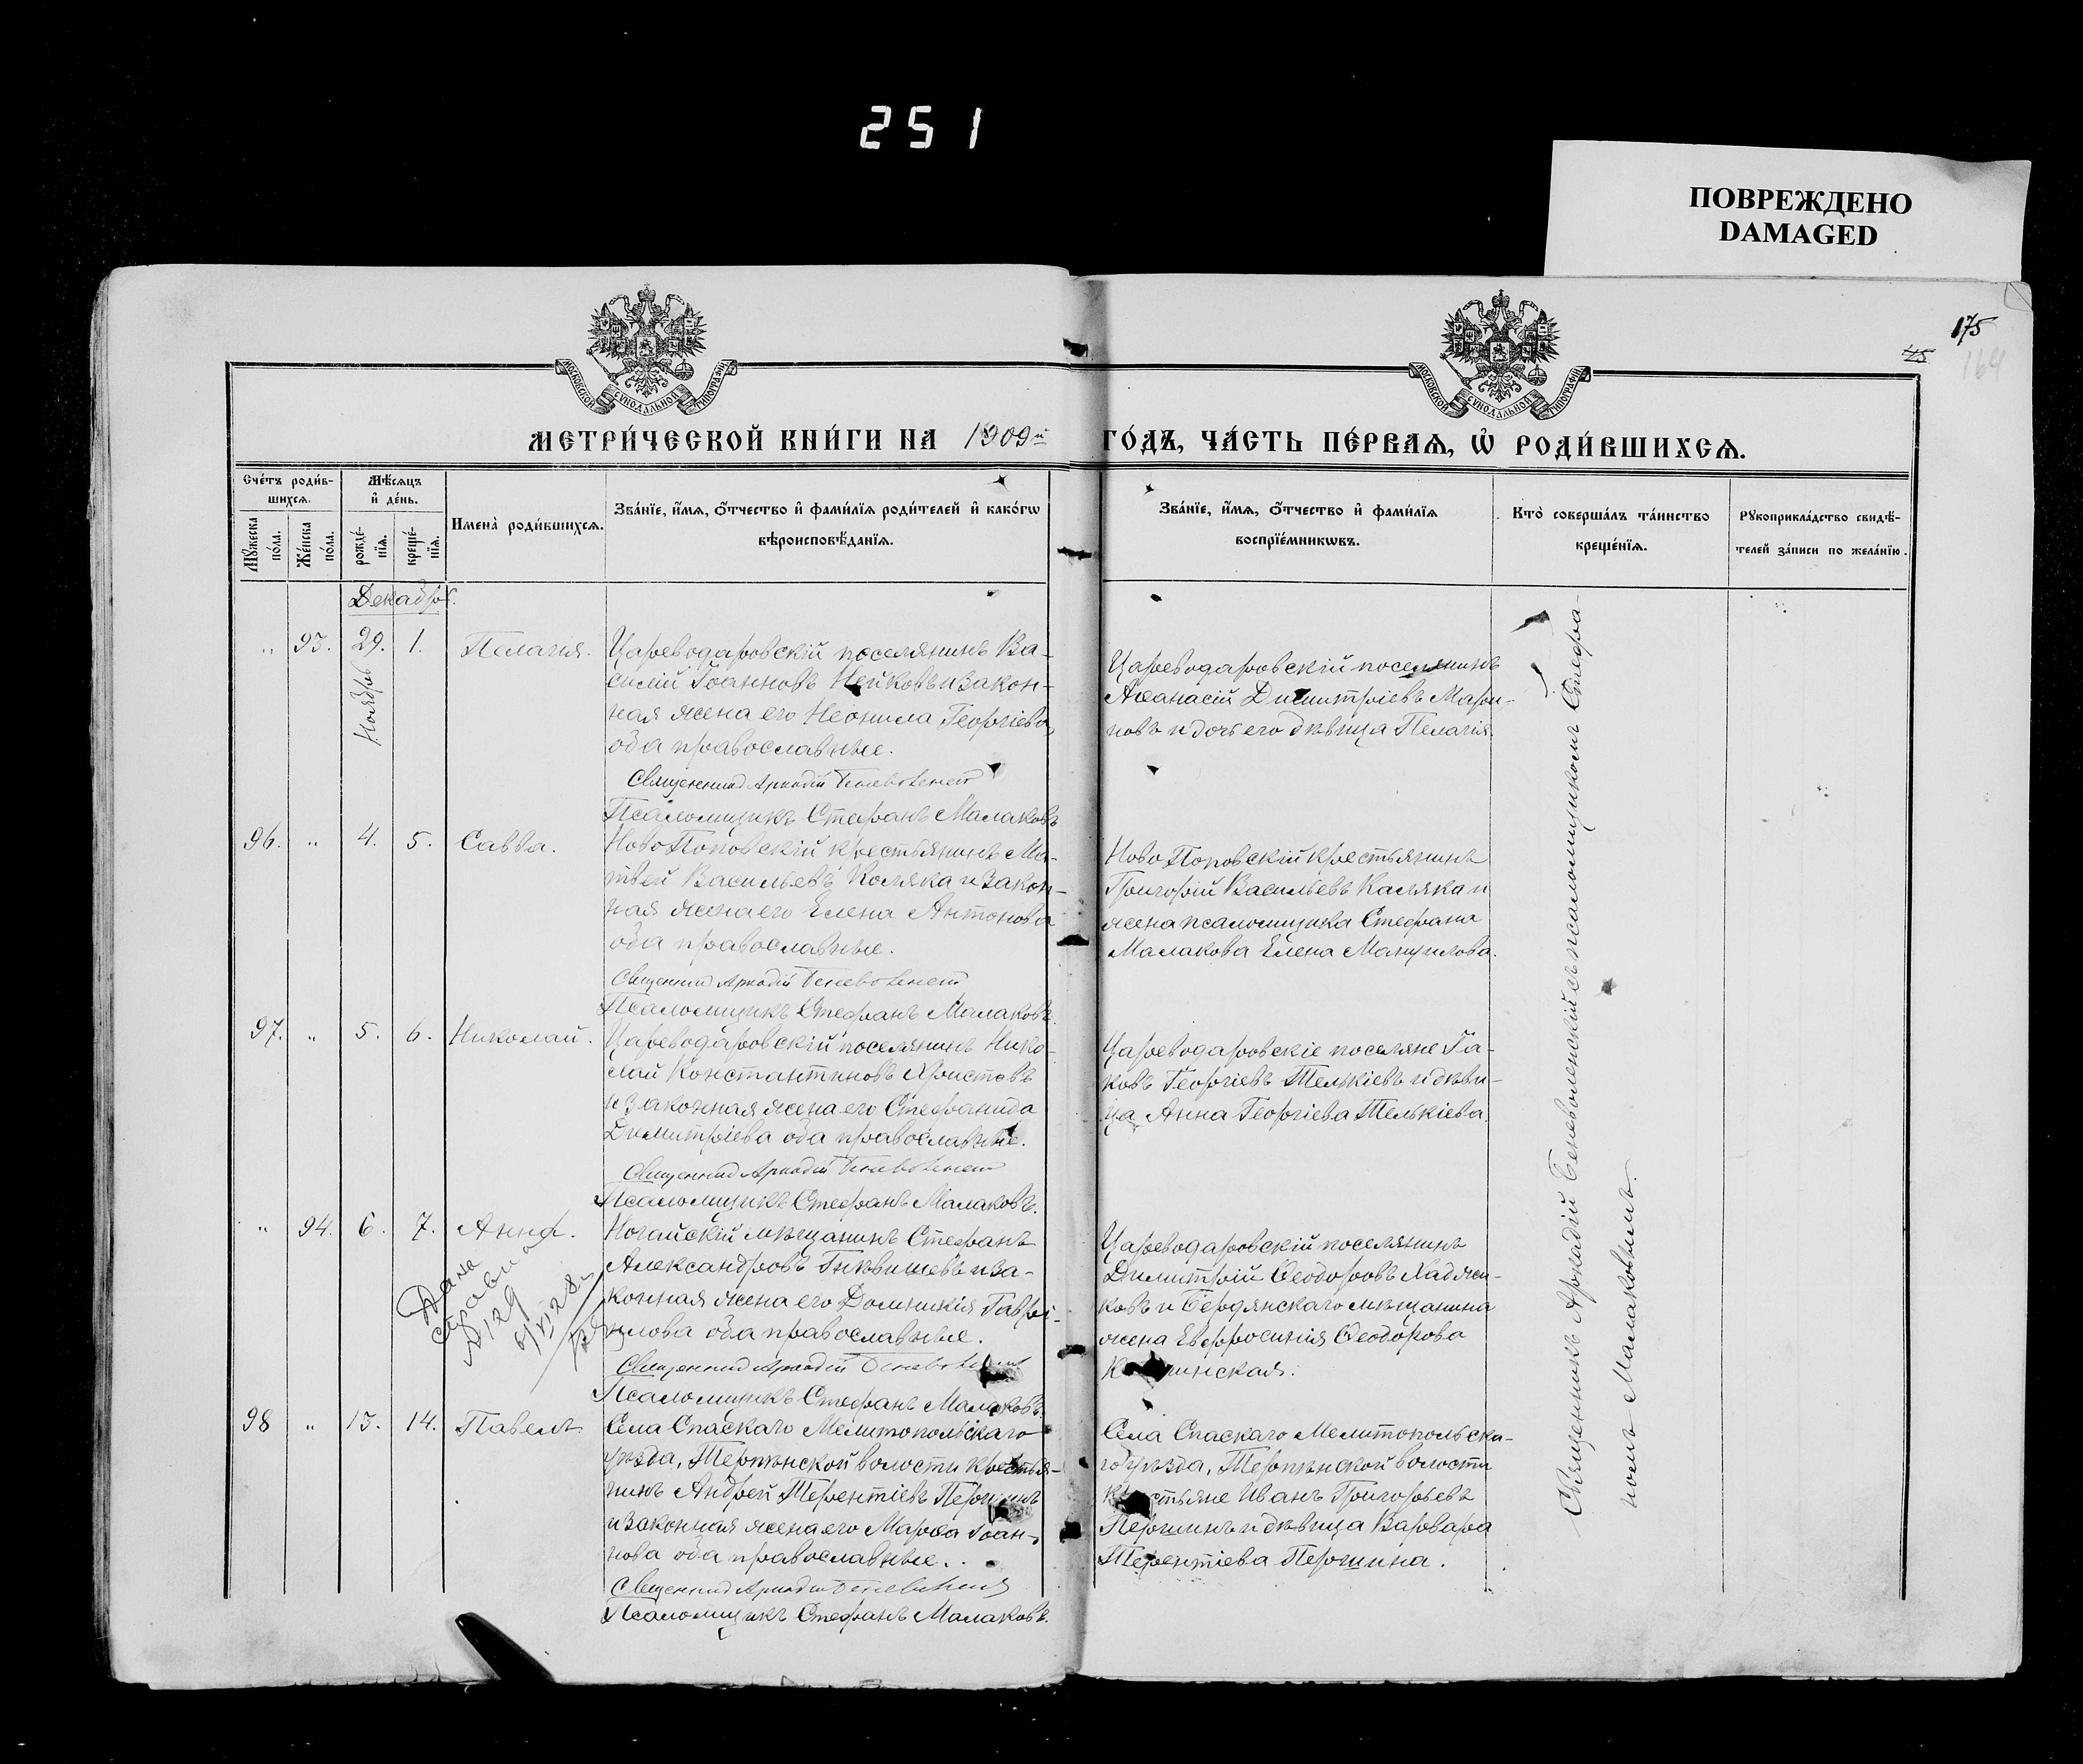 251
ПОВРЕЖДЕНО
DAMAGED
175
45
164
МОСКОВСКОЙ СѴНОДАЛЬНОЙ ТИПОГРАФІИ
МОСКОВСКОЙ СѴНОДАЛЬНОЙ ТИПОГРАФІИ
МЕТРИ́ЧЕСКОЙ КНИ́ГИ НА 1909й ГО́ДЪ, ЧА́СТЬ ПЕ́РВАѦ, Ѡ҆ РОДИ́ВШИХСѦ.
Сче́тъ роди́в-
шихсѧ.
Мꙋ́жеска по́ла.
Же́нска по́ла.
Мѣ́сѧцъ
и҆ де́нь.
рожде́-
нїѧ.
креще́-
нїѧ.
Имена̀ роди́вшихсѧ.
Зва́нїе, и҆́мѧ, ѻ҆́тчество и҆ фами́лїѧ роди́телей и҆ како́гѡ
вѣроисповѣ́данїѧ.
Зва́нїе, и҆́мѧ, ѻ҆́тчество и҆ фами́лїѧ
воспрїе́мникѡвъ.
Кто̀ соверша́лъ та́инство
креще́нїѧ.
Рꙋкоприкла́дство свидѣ́-
телей за́писи по жела́нїю.
Декабрь.
„ 93. 29. 1. Пелагія.
Ноябрь
Цареводаровскій поселянинъ Ва-
силій Іоанновъ Нейковъ и закон-
ная жена его Неонила Георгіева
оба православные.
Священникъ Аркадій Беневоленскій
Псаломщикъ Стефанъ Малаковъ
Цареводаровскій поселянинъ
Аѳанасій Димитріевъ Мари-
новъ и дочь его дѣвица Пелагія.
96. „ 4. 5. Савва.
НовоПоповскій крестьянинъ Ма-
твей Васильевъ Коляка и закон-
ная жена его Елена Антонова
оба православные.
Священникъ Аркадій Беневоленскій
Псаломщикъ Стефанъ Малаковъ.
НовоПоповскій крестьянинъ
Григорій Васильевъ Каляка и
жена псаломщика Стефана
Малакова Елена Мануилова.
97. „ 5. 6. Николай.
Цареводаровскій поселянинъ Нико-
лай Константиновъ Христовъ
и законная жена его Стефанида
Димитріева оба православные.
Священникъ Аркадій Беневоленскій
Псаломщикъ Стефанъ Малаковъ.
Цареводаровскіе поселяне Іа-
ковъ Георгіевъ Телькіевъ и дѣви-
ца Анна Георгіева Телькіева.
„ 94. 6. 7. Анна.
Дана
справка
№ 129
Ногайскій мѣщанинъ Стефанъ
Александровъ и за-
конная жена его Домникія Гаврі-
илова оба православные.
Священникъ Аркадій
Псаломщикъ Стефанъ Малаковъ.
Цареводаровскій поселянинъ
Димитрій Ѳеодоровъ Хаджи-
ковъ и Бердянскаго мѣщанина
жена Евфросинія Ѳеодорова
98 „ 13. 14. Павелъ
Села Спаскаго Мелитопольскаго
уѣзда, Терпѣнской волости крестья-
нинъ Андрей Терентіевъ Першинъ
и законная жена его Марѳа Іоан-
нова оба православные.
Священникъ Аркадій Беневоленскій
Псаломщикъ Стефанъ Малаковъ.
Села Спаскаго Мелитопольска-
го уѣзда, Терпѣнской волости
крестьяне Иванъ Григорьевъ
Першинъ и дѣвица Варвара
Терентіева Першина.
Священникъ Аркадій Беневоленскій съ псаломщикомъ Стефа-
номъ Малаковымъ.